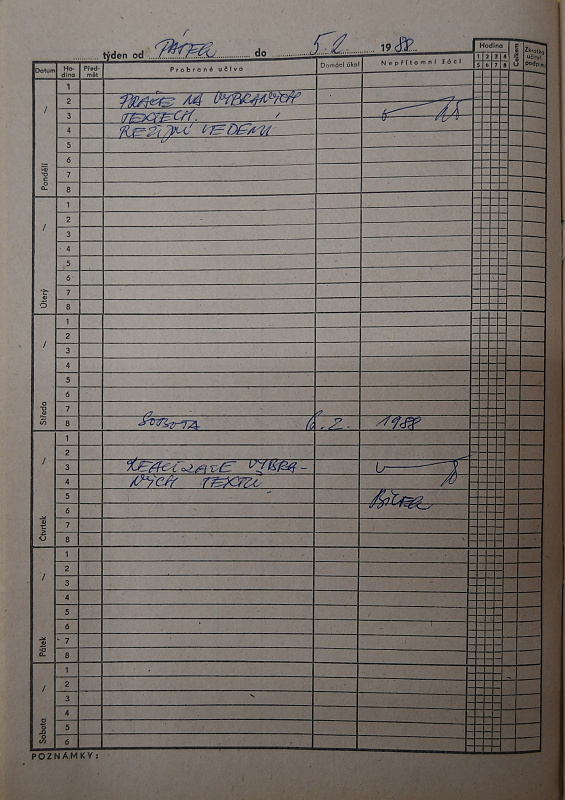 týden od PÁTEK do 5.2. 1988
Datum Ho-dina Před-mět Probrané učivo Domácí úkol Nepřítomní žáci Hodina 1 2 3 4 5 6 7 8 Celkem Zkratka učitel. podpisu
Pondělí /
1
2 PRÁCE NA VYBRANÝCH
3 TEXTECH.
4 REŽIJNÍ VEDENÍ
5
6
7
8
Úterý /
1
2
3
4
5
6
7
8
Středa /
1
2
3
4
5
6
7
8 SOBOTA 6.2. 1988
Čtvrtek /
1
2
3 REALIZACE VYBRA-
4 NÝCH TEXTŮ
5
6
7
8
Pátek /
1
2
3
4
5
6
7
8
Sobota /
1
2
3
4
5
6
POZNÁMKY: